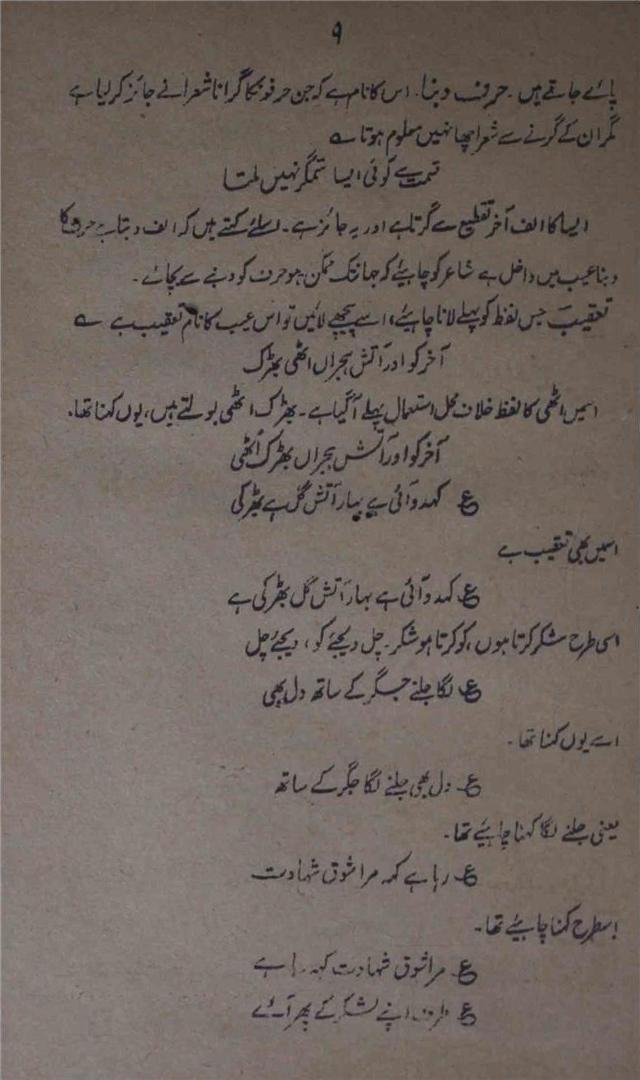 ۹
پائے جاتے ہیں۔ حرف دبنا۔ اس کا نام ہے کہ جن حرفوں کا گرانا شعرا نے جائز کر لیا ہے
مگر ان کے گرنے سے شعر اچھا نہیں معلوم ہوتا ؎
قسمت سے کوئی ایسا ستمگر نہیں ملتا
ایسا کا الف آخر تقطیع سے گرتا ہے اور یہ جائز ہے۔ اسلئے کہتے ہیں کہ الف دبتا ہے حرف کا
دبنا عیب میں داخل ہے شاعر کو چاہیئے کہ جہانتک ممکن ہو حرف کو دبنے سے بچائے۔
تعقیب جس لفظ کو پہلے لانا چاہیے، اسے پیچھے لائیں تو اس عیب کا نام تعقیب ہے ؎
آخر کو اور آتش ہجراں اٹھی بھڑک
اسمیں اٹھی کا لفظ خلاف محل استعمال پہلے آگیا ہے۔ بھڑک اٹھی بولتے ہیں، یوں کہنا تھا۔
آخر کو اور آتش ہجراں بھڑک اُٹھی
ع کہدو آئی ہے بہار آتش گل ہے بھڑکی
اسمیں بھی تعقیب ہے
ع کہدو آئی ہے بہار آتش گل بھڑکی ہے
اسی طرح شکر کرتا ہوں، کو کرتا ہو شکر۔ چل دیجئے کو، دیجئے چل
ع لگا جلنے جگر کے ساتھ دل بھی
اسے یوں کہنا تھا۔
ع دل بھی جلنے لگا جگر کے ساتھ
یعنی جلنے لگا کہنا چاہیئے تھا۔
ع رہا ہے کہہ مرا شوق شہادت
اسطرح کہنا چاہیئے تھا۔
ع مرا شوق شہادت کہہ رہا ہے
ع طرف اپنے لشکر کے پھر آئے